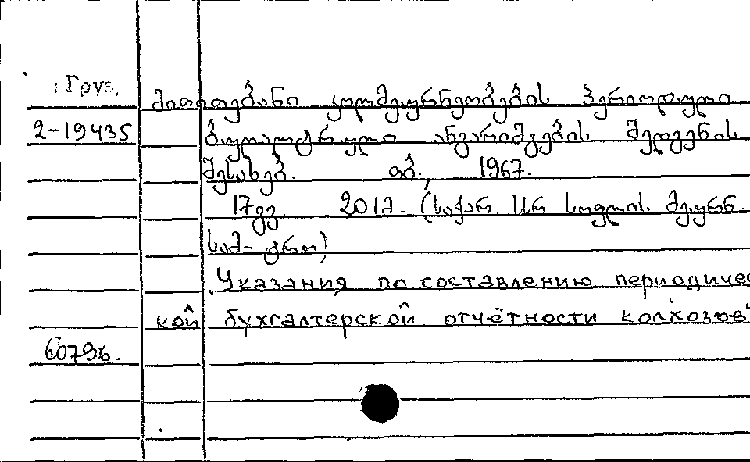 Груз. მითითებანი კოლმეურნეობების პერიოდული
2-19435 ბუღალტრული ანგარიშგების შედგენის
შესახებ. თბ., 1967.
17გვ. 20სმ. (საქარ. სსრ სოფლის მეურნ.
სამ-ტრო)
"Указания по составлению периодичес
кой бухгалтерской отчётности колхозов"
60796.